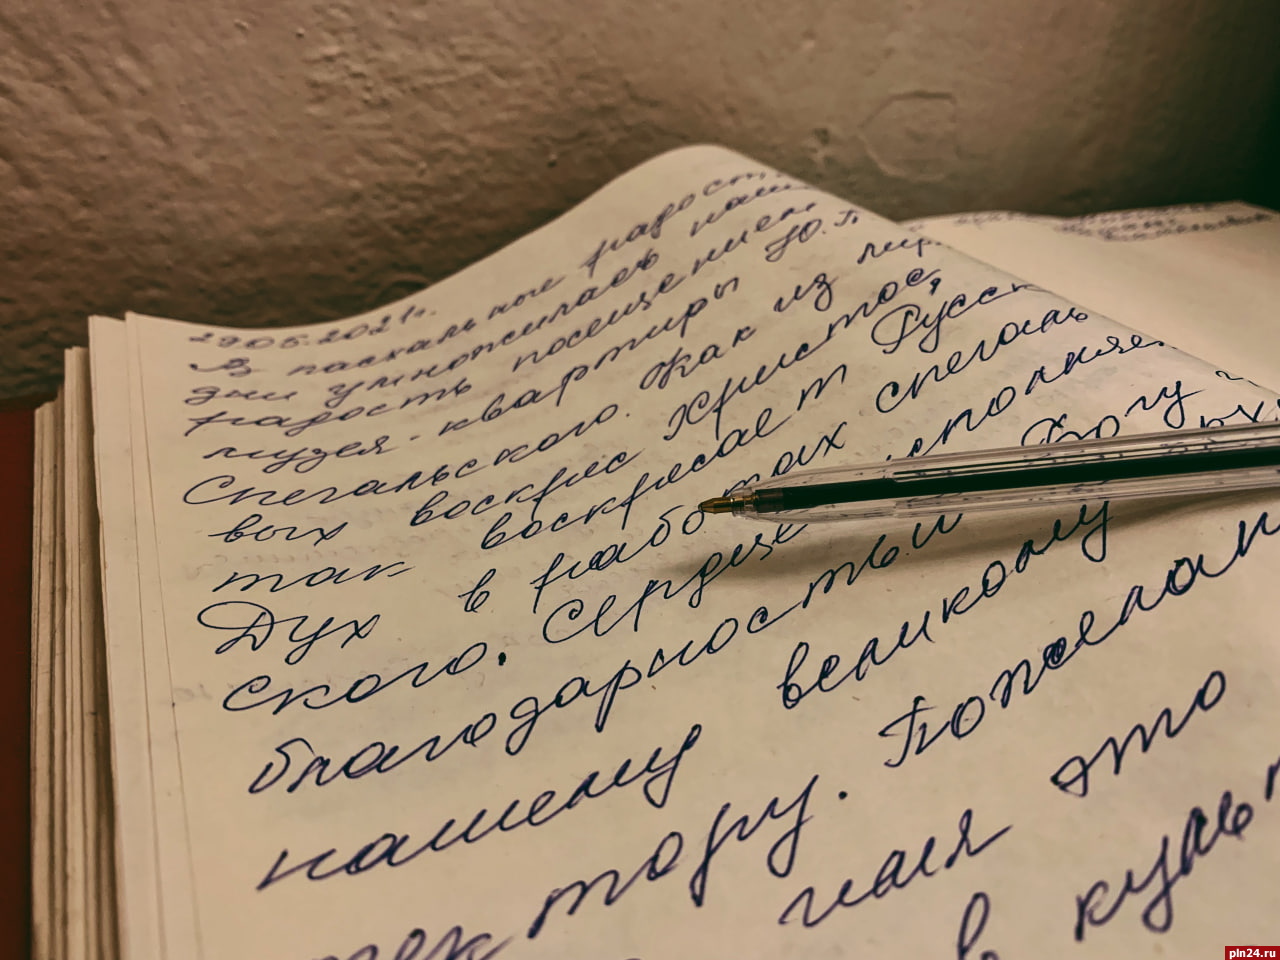 29.05.2021г.
В пасхальные радост
дни умножилась наша
радость посещением
музея-квартиры Ю.П.
Спегальского. Как из мёрт
вых воскрес Христос,
так воскресает Русск
Дух в работах Спегаль
ского. Сердце исполняе
благодарностью Богу и
нашему великому
тектору. Пожелан
ния это
в куль
pln24.ru